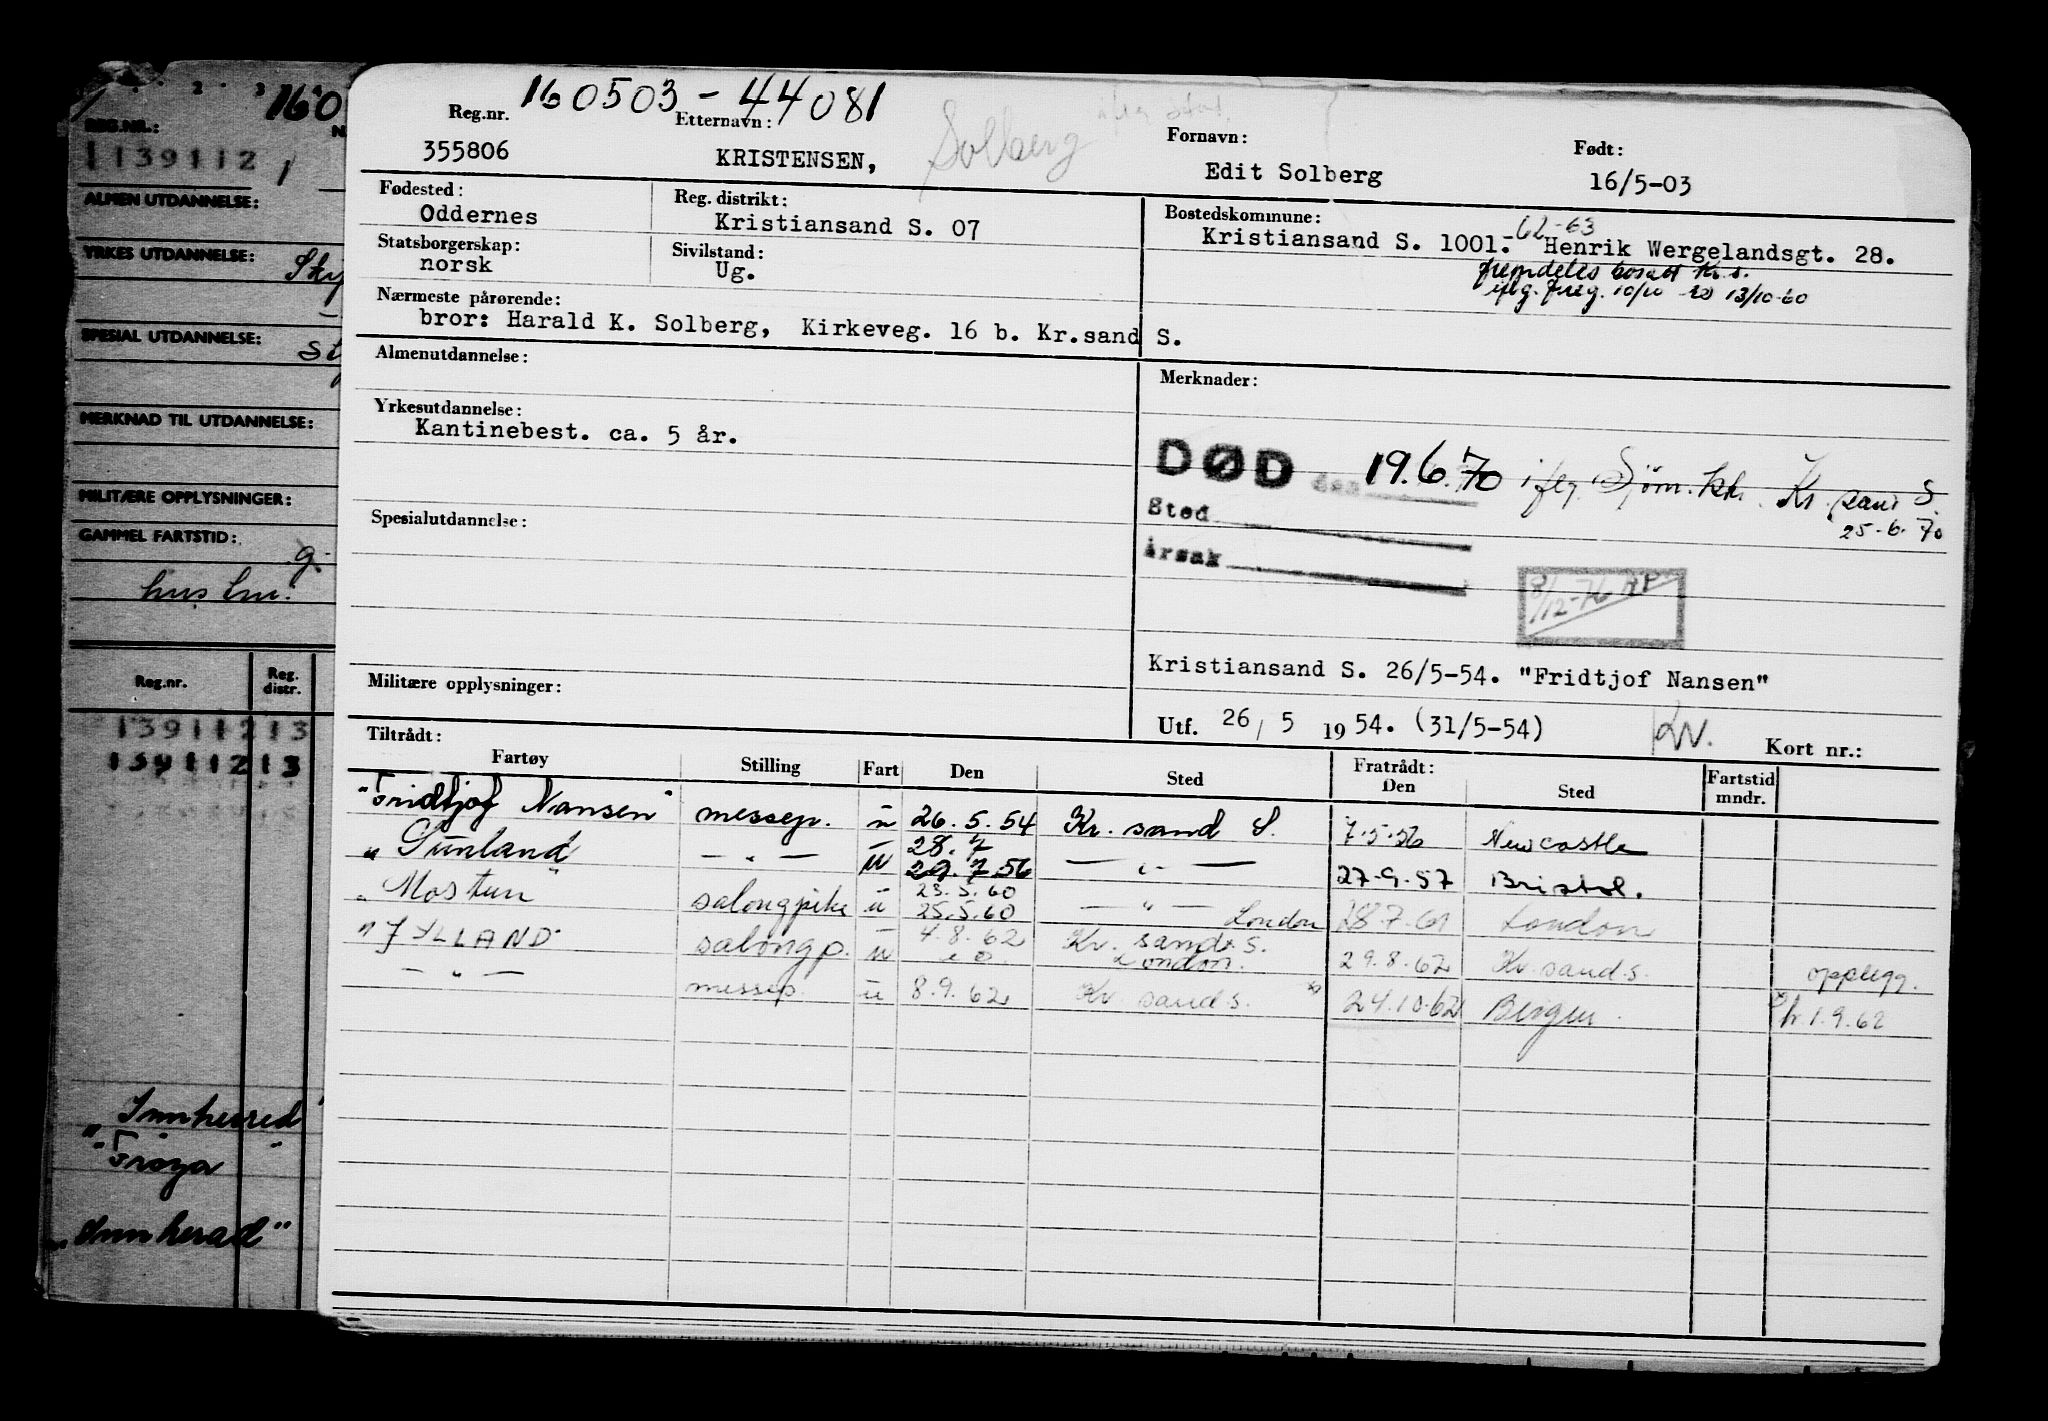 160503 - 44081
Reg.nr. Etternavn: Fornavn: Født:
355806 KRISTENSEN, Solberg Edit Solberg 16/5-03
Fødested: Reg. distrikt: Bostedskommune:
Oddernes Kristiansand S. 07 Kristiansand S. 1001. 62-63 Henrik Wergelandsgt. 28.
Statsborgerskap: Sivilstand:
norsk Ug.
fremdeles bosatt Kr. s.
iflg. freg. 10/10 13/10-60
Nærmeste pårørende:
bror: Harald K. Solberg, Kirkeveg. 16 b. Kr.sand S.
Almenutdannelse: Merknader:
Yrkesutdannelse:
Kantinebest. ca. 5 år.
DØD den 19.6.70 iflg. Sjøm.kk. Kr.sand S.
25-6.70
Sted
Årsak
8/12-76 AP
Spesialutdannelse:
Kristiansand S. 26/5-54. "Fridtjof Nansen"
Militære opplysninger:
Utf. 26/5 1954. (31/5-54) Kort nr.:
Tiltrådt: Fratrådt:
Fartøy Stilling Fart Den Sted Den Sted Fartstid mndr.
"Fridtjof Nansen" messep. u 26.5.54 Kr. sand S. 7.5.56 Newcastle
28.7
"Sunland" — " — u 29.7.56 — " — 27.9.57 Bristol.
23.5.60
"Mostun" salongpike u 25.5.60 — " — London 28.7.61 London
"JYLLAND" salongp. u 4.8.62 Kr. sand s. London. 29.8.62 Kr.sand s. opplegg.
— " — messep. u 8.9.62 Kr. sand s. 24.10.62 Bergen. 1.9.62
160
REG.NR.:
1139112 1
ALMEN UTDANNELSE:
YRKES UTDANNELSE:
SPESIAL UTDANNELSE:
MERKNAD TIL UTDANNELSE:
MILITÆRE OPPLYSNINGER:
GAMMEL FARTSTID:
g.
Reg.nr. Reg. distr.
139112 13
139112 13
"Innherred"
"Frøya"
"Innherad"